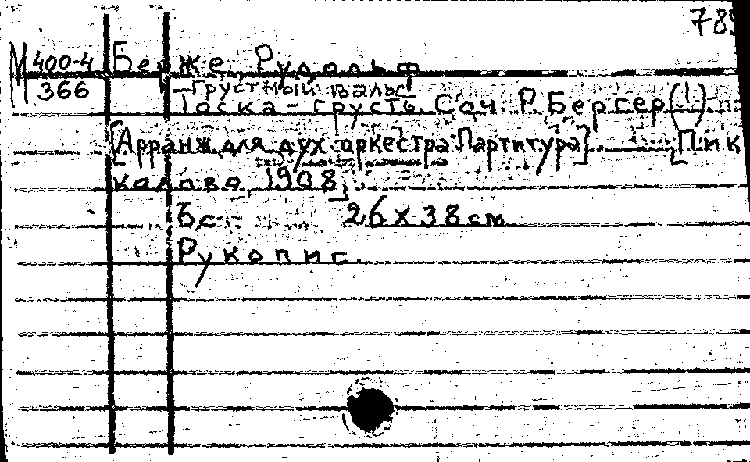 789
М 400-4
366
Берже Рудольф
Грустный вальс
Тоска-грусть. Соч. Р. Бергер(!)
[Арранж. для дух. оркестра. Партитура]. [Пик
колова, 1908].
6с. 26 x 38 см.
Рукопис.